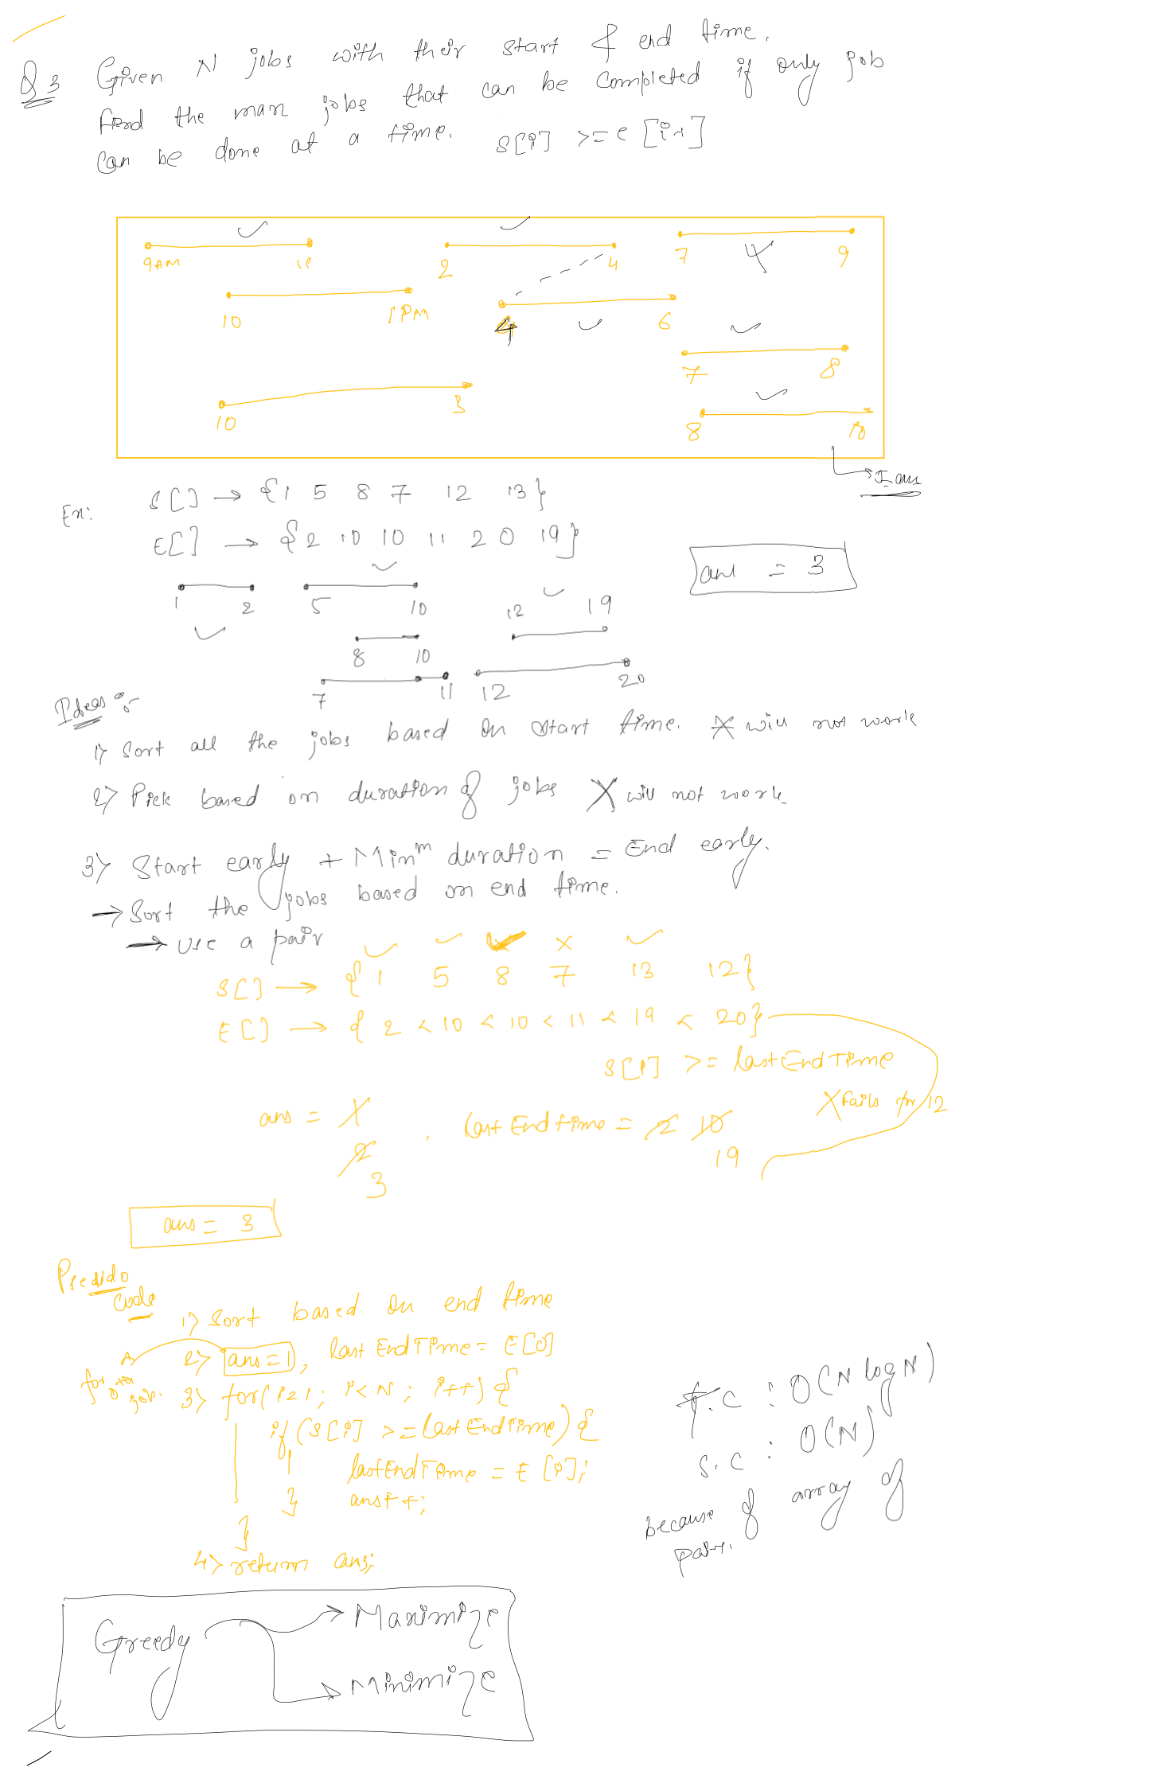 Q3 Given N jobs with their start & end time.
find the max jobs that can be completed if only job
can be done at a time. S[i] >= e[i-1]
9AM 11 2 4 7 9
10 1PM 4 6
7 8
10 3
8 10
I ans
Ex: S[] → {1 5 8 7 12 13}
E[] → {2 10 10 11 20 19}
ans = 3
1 2 5 10 12 19
8 10
7 11 12 20
Ideas :-
1) Sort all the jobs based on start time. X will not work
2) Pick based on duration of jobs X will not work
3) Start early + Minm duration = End early.
→ Sort the jobs based on end time.
→ use a pair
S[] → { 1 5 8 7 13 12}
E[] → { 2 < 10 < 10 < 11 < 19 < 20}
S[i] >= lastEndTime
X fails for 12
ans = 1 , last Endtime = 2 10
2 19
3
ans = 3
Pseudo
Code
1) Sort based on end time
2) ans=1, last EndTime = E[0]
for 0th job.
3) for( i=1; i<N; i++) {
if (S[i] >= lastEndTime) {
lastEndTime = E[i];
} ans++;
}
4) return ans;
T.C : O(N log N)
S.C : O(N)
because of array of
pair.
Greedy → Maximize
→ Minimize